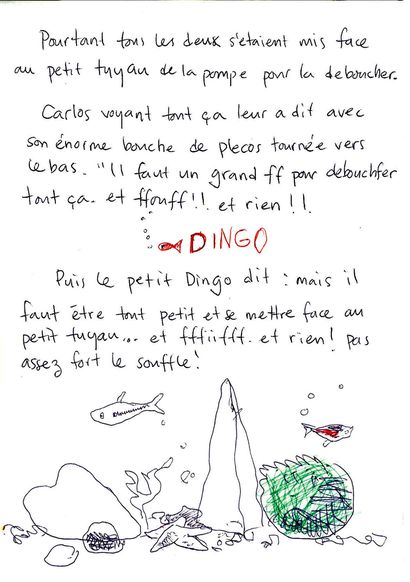 Pourtant tous les deux s'étaient mis face
au petit tuyau de la pompe pour la deboucher.
Carlos voyant tout ça leur a dit avec
son énorme bouche de plecos tournée vers
le bas. "Il faut un grand ff pour débouchfer
tout ça. et ffouff!! et rien!!
DINGO
Puis le petit Dingo dit : mais il
faut être tout petit et se mettre face au
petit tuyau... et fffiifff. et rien! pas
assez fort le souffle!